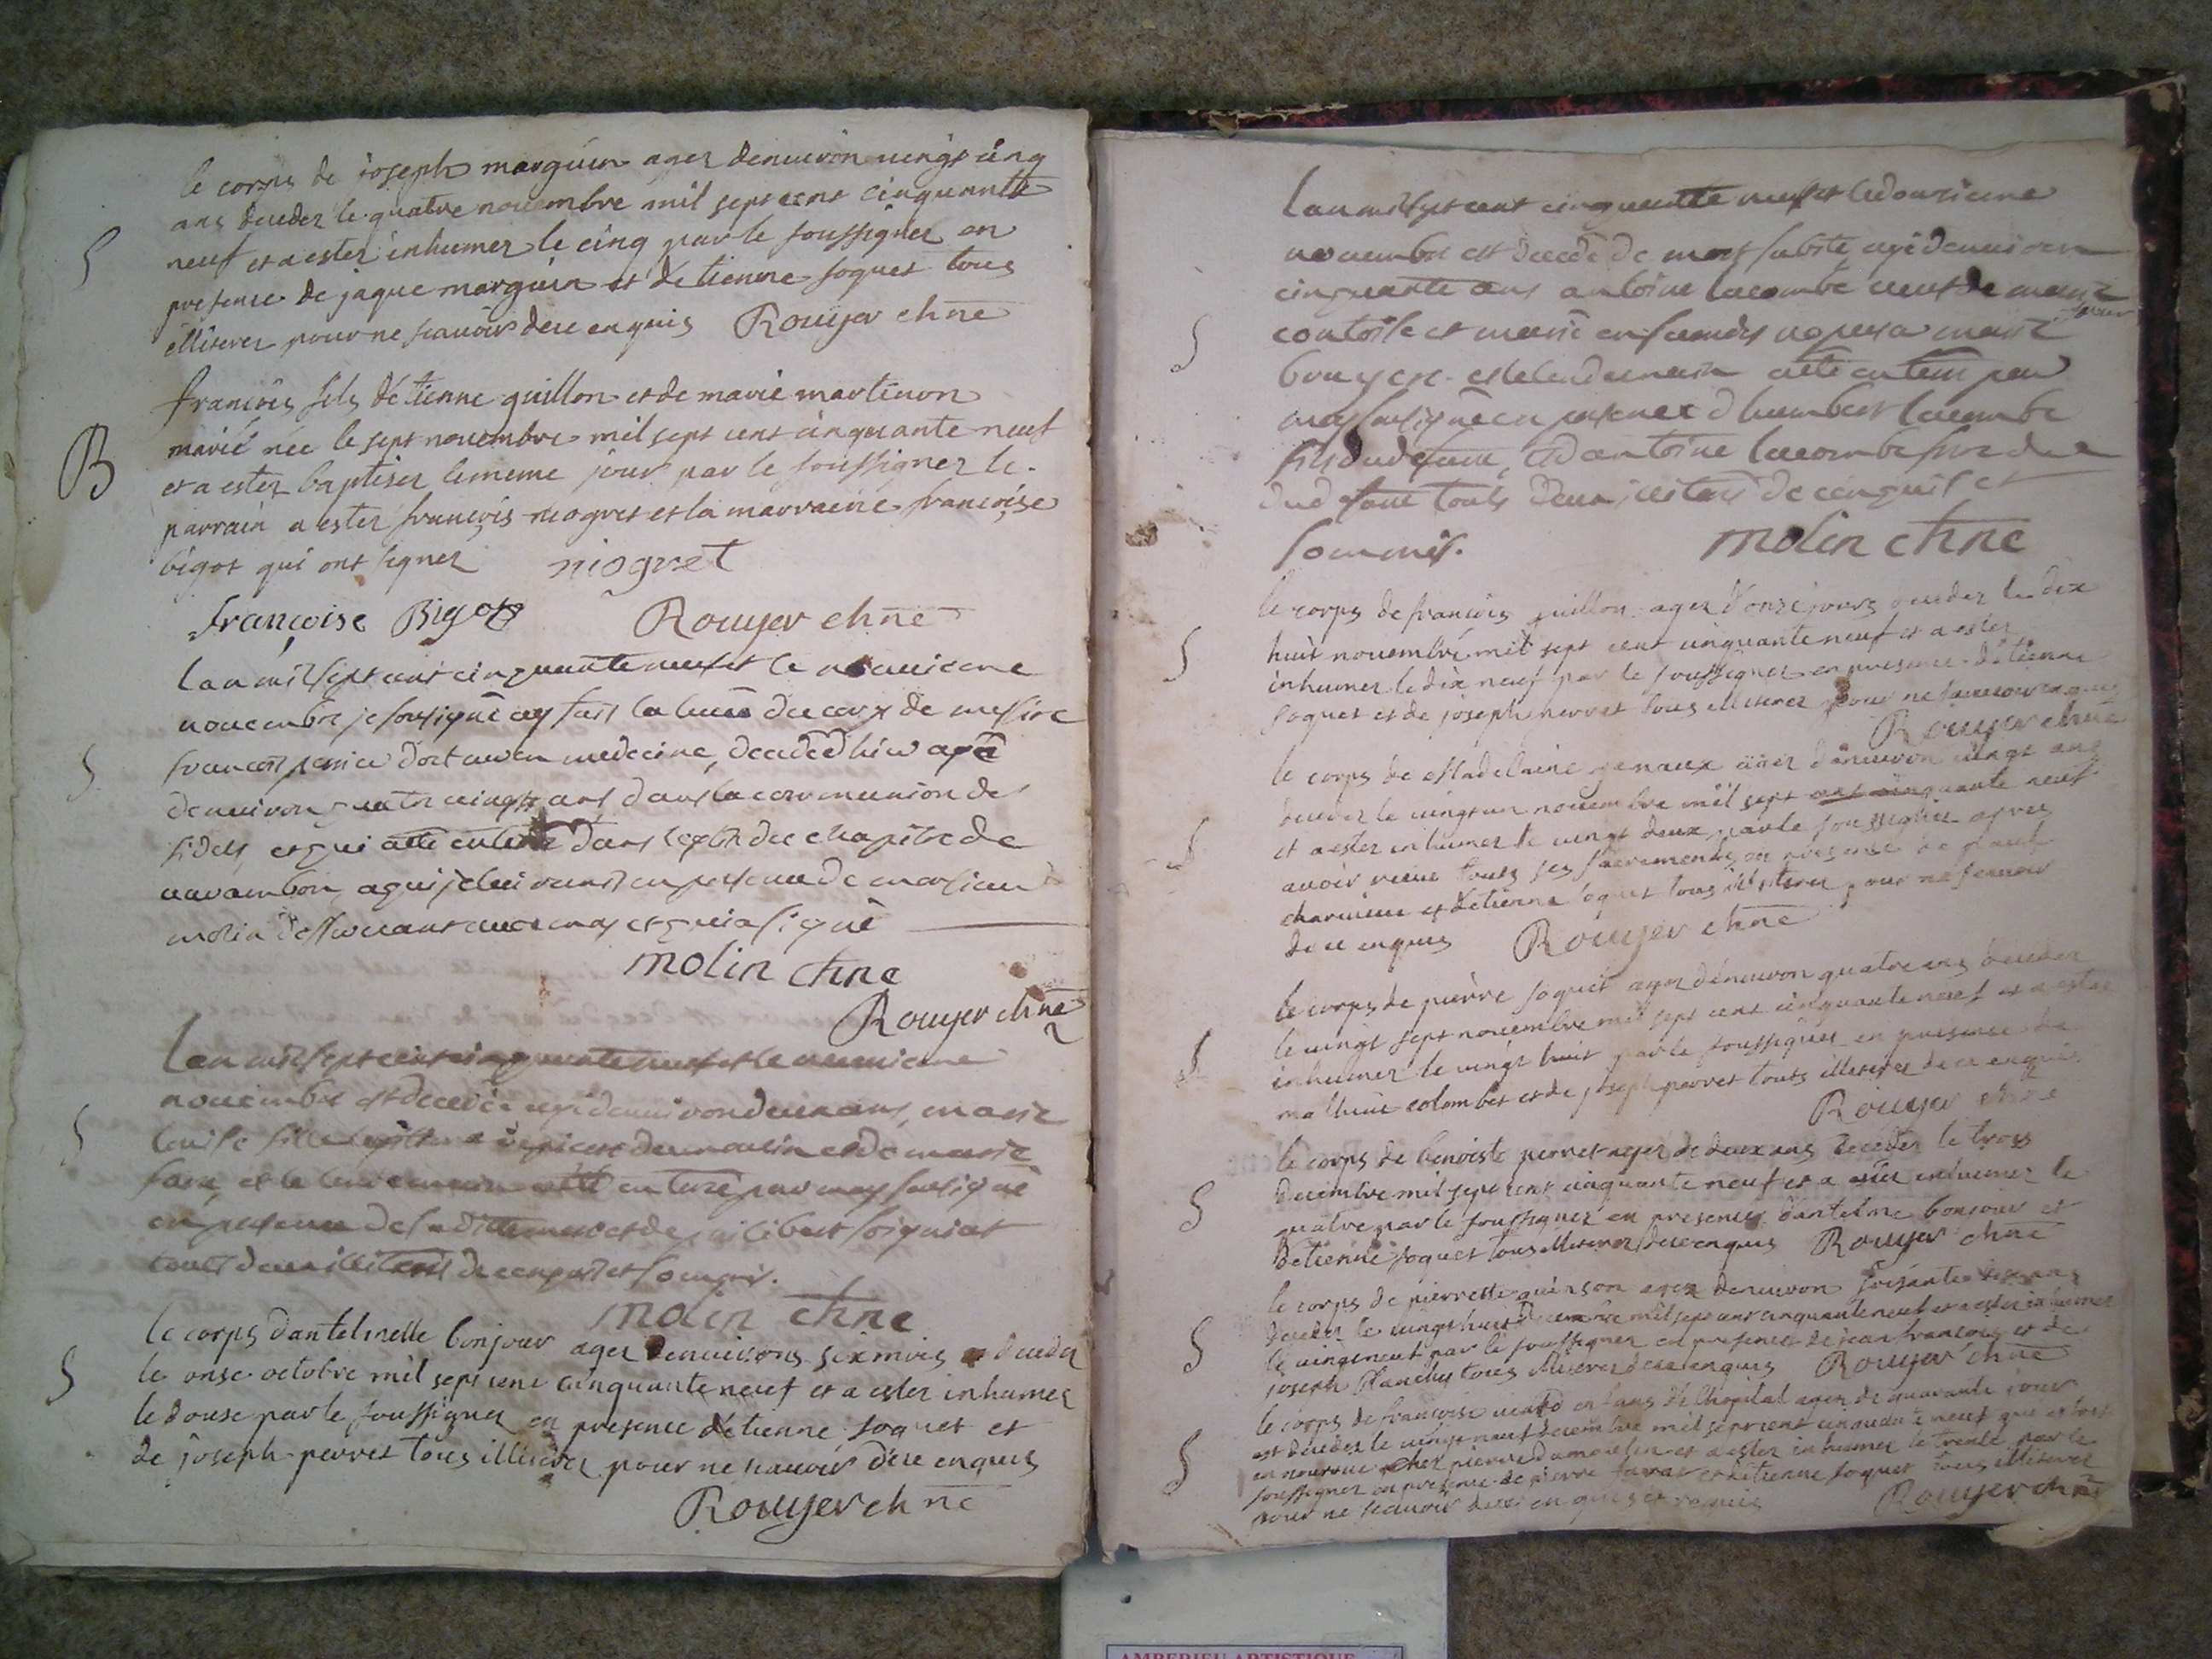 le corps de joseph marguin agez denuiron uingt cinq
ans deceder le quatre nouembre mil sept cent cinquante
neuf et a ester inhumer le cinq par le soussigner en
presence de jaque marguin et detienne soquet tous
illiterez pour ne scauoir dece enquis Rouyer chne
S
francois fils detienne guillon et de marie martinon
marié née le sept nouembre mil sept cent cinquante neuf
et a ester baptiser le meme jour par le soussigner le
parrain a ester françois niogret et la marraine françoise
bigot qui ont signer niogret
B
françoise Bigot Rouyer chne
Lan mil sept cent cinquante neuf et le neuuieme
nouembre je sousigné ay fait la leuée du corps de messire
francois docteur en medecine, decedé hier agé
denuiron quatre uingts ans dans la communion des
fidels et qui a été enterré dans du chapitre de
a qui je lai remis en presence de monsieur
molin auec moy et qui a signé
S
molin chne
Rouyer chne
Lan mil sept cent cinquante neuf et le neuuieme
nouembre est decedée agé denuiron deux ans, marie
louise fille de pierre dumoulin et de marie
et le lendemain a été enterré par moy sousigné
en presence de et de philibert
touts deux illiterés de ce enquis et sommis.
S
molin chne
le corps dantelmette bonjour agez denuirons six mois deceder
le onse octobre mil sept cent cinquante neuf et a ester inhumer
le douse par le soussigner en presence detienne soquet et
de joseph perret tous illiterez pour ne scauoir dece enquis
S
Rouyer chne
Lan mil sept cent cinquante neuf et le douzieme
nouembre est decedé de mort subite agé denuiron
cinquante ans antoine lacombe ueuf de marie
contoise et marié en secondes noces a marie
et le lendemain a été enterré par
moy sousigné en presence d humbert lacombe
fils du defunt, et d antoine lacombe frere
du defunt touts deux illiterés de ce enquis et
sommis. molin chne
S
le corps de francois guillon agez donze jours deceder le dix
huit nouembre mil sept cent cinquante neuf et a ester
inhumer le dix neuf par le soussigner en presence detienne
soquet et de joseph perret tous illiterez pour ne scauoir enquis
S
Rouyer chne
le corps de Madelaine agez denuiron uingt ans
deceder le uingt un nouembre mil sept cent cinquante neuf
et a ester inhumer le uingt deux par le soussigner apres
auoir receu touts ses sacrements en presence de
et detienne soquet tous illiterez pour ne scauoir
de ce enquis Rouyer chne
S
le corps de pierre soquet agez denuiron quatre ans deceder
le uingt sept nouembre mil sept cent cinquante neuf et a ester
inhumer le uingt huit par le soussigner en presence de
mathieu colombet et de joseph perret touts illiterez de ce enquis
S
Rouyer chne
le corps de benoiste perret agez de deux ans deceder le trois
decembre mil sept cent cinquante neuf et a ester inhumer le
quatre par le soussigner en presence dantelme bonjour et
detienne soquet tous illiterez dece enquis Rouyer chne
S
le corps de pierrette quinson agez denuiron soisante ans
deceder le uingt huit decembre mil sept cent cinquante neuf et a ester inhumer
le uingt neuf par le soussigner en presence de jean francois et de
joseph Planchy tous illiterez dece enquis Rouyer chne
S
le corps de francoise enfans de lhopital agez de quarante jour
est deceder le uingt neuf decembre mil sept cent cinquante neuf qui estoit
en nourrice cher pierre dumoulin et a ester inhumer le trente par le
soussigner en presence de pierre et detienne soquet tous illiterez
pour ne scauoir dece enquis et requis Rouyer chne
S
AMBERIEU ARTISTIQUE